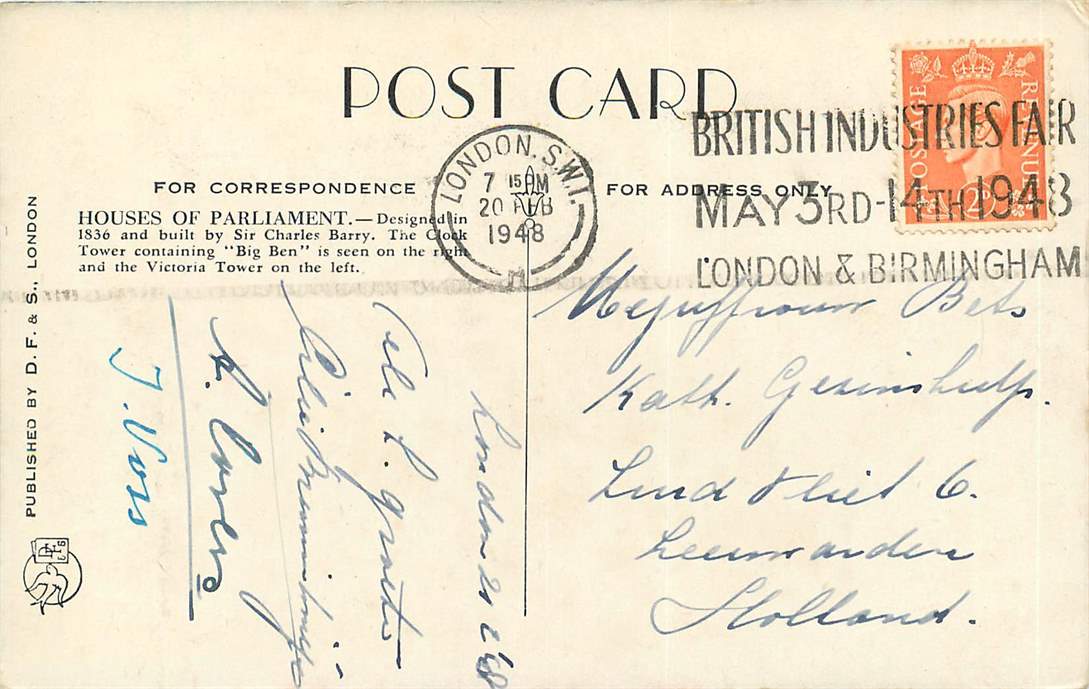 POST CARD
FOR CORRESPONDENCE
HOUSES OF PARLIAMENT.—Designed in
1836 and built by Sir Charles Barry. The Clock
Tower containing "Big Ben" is seen on the right
and the Victoria Tower on the left.
PUBLISHED BY D. F. & S., LONDON
LONDON. S.W.1.
7 15 AM
20 FEB
1948
BRITISH INDUSTRIES FAIR
MAY 3RD-14TH 1948
LONDON & BIRMINGHAM
POSTAGE
REVENUE
2D
FOR ADDRESS ONLY
Mejuffrouw Bets
Kath. Gezinshulp.
Leeuwarden
Holland.
London
Vele
J. Vos